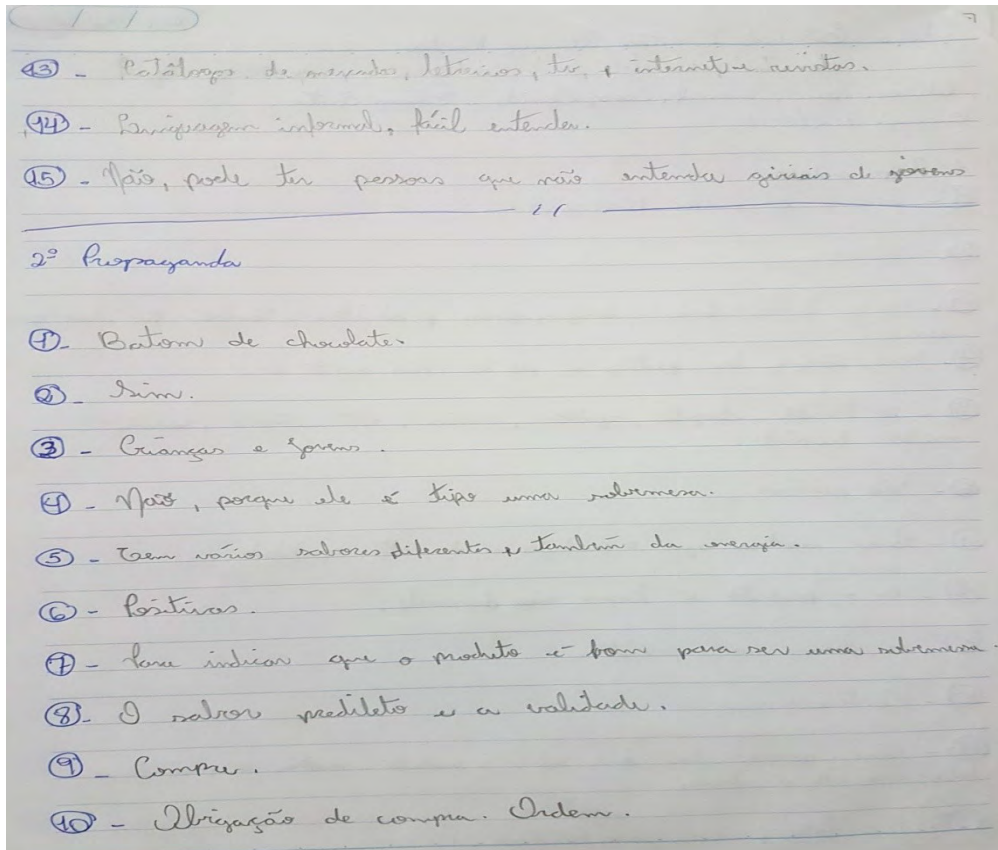 / / 7
13 - Catálogos de mercados, letreiros, tv, e internet e revistas.
14 - Linguagem informal, fácil entender.
15 - Não, pode ter pessoas que não entenda giriais de jovens
2º Propaganda
1 - Batom de chocolate.
2 - Sim.
3 - Crianças e Jovens.
4 - Não, porque ele é tipo uma sobremesa.
5 - Tem vários sabores diferentes e também da energia.
6 - Positivas.
7 - Para indicar que o produto é bom para ser uma sobremesa.
8 - O sabor predileto e a validade.
9 - Compre.
10 - Obrigação de compra. Ordem.